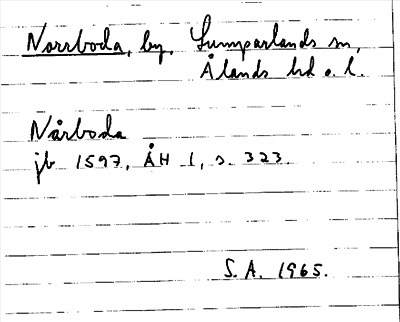 Norrboda, by, Lumparlands sn,
Ålands hd o. l.
Nårboda
jb 1597, ÅH 1, s. 323.
S.A. 1965.